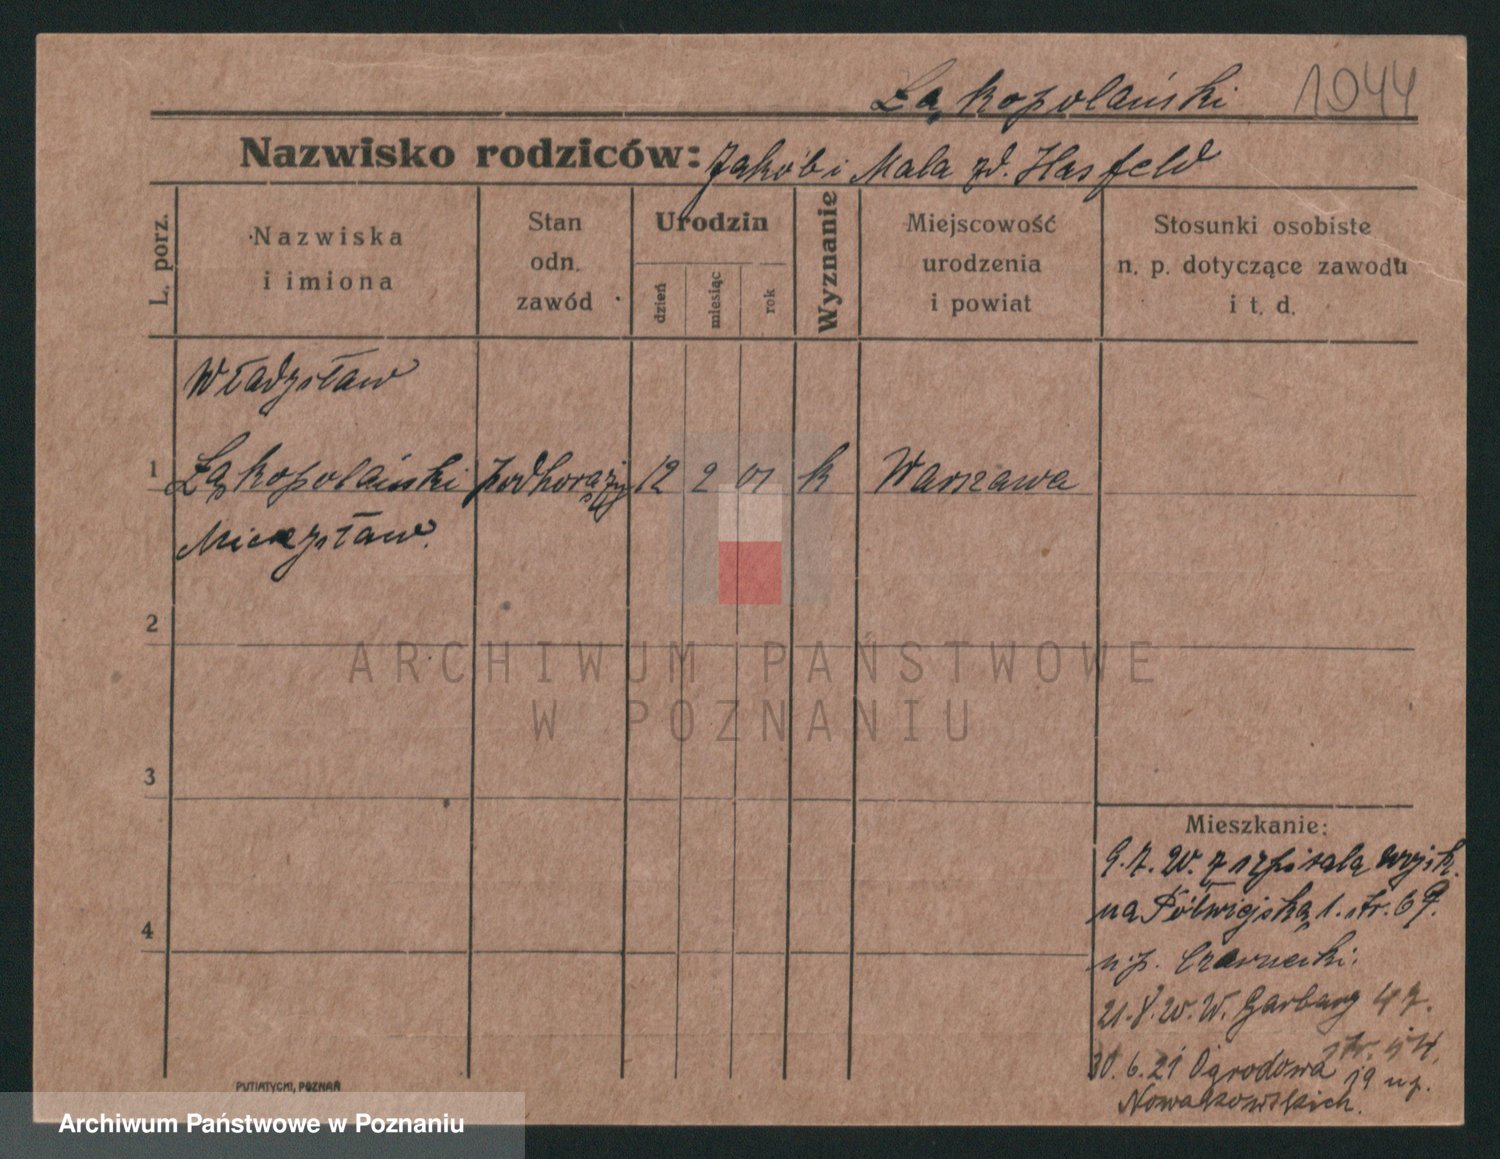 Łąkopolański 1044
Nazwisko rodziców: Jakób i Mala zd. Hasfeld
L. porz.
Nazwiska
i imiona
Stan
odn.
zawód
Urodzin
dzień
miesiąc
rok
Wyznanie
Miejscowość
urodzenia
i powiat
Stosunki osobiste
n. p. dotyczące zawodu
i t. d.
Władysław
1 Łąkopolański podchorąży 12 2 01 k Warszawa
Mieczysław.
2
ARCHIWUM PAŃSTWOWE
W POZNANIU
3
4
Mieszkanie:
9.7.20. z szpitala wojsk.
na Półwiejską 1. str. 69.
u p. Czarnecki.
21.8.20. W. Garbary 47.
str. 54.
30.6.21 Ogrodowa 19 u p.
Nowakowskich.
PUTIATYCKI, POZNAŃ
Archiwum Państwowe w Poznaniu